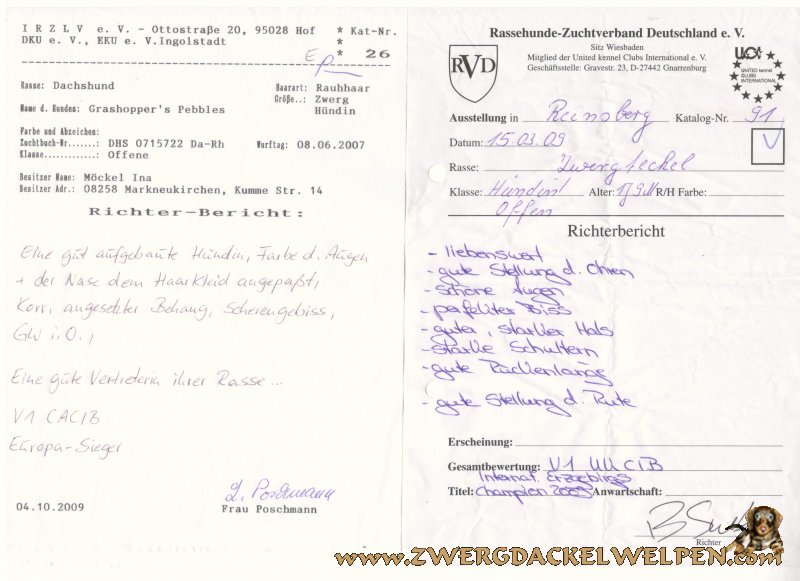 I R Z L V e. V. - Ottostraße 20, 95028 Hof * Kat-Nr.
DKU e. V., EKU e. V.Ingolstadt *
* 26
Rasse: Dachshund
Haarart: Rauhhaar
Größe..: Zwerg
Name d. Hundes: Grashopper's Pebbles
Hündin
Farbe und Abzeichen:
Zuchtbuch-Nr......: DHS 0715722 Da-Rh
Wurftag: 08.06.2007
Klasse............: Offene
Besitzer Name: Möckel Ina
Besitzer Adr.: 08258 Markneukirchen, Kumme Str. 14
Richter-Bericht:
Eine gut aufgebaute Hündin, Farbe d. Augen
+ der Nase dem Haarkleid angepaßt,
Korr. angesetzter Behang, Scherengebiss,
GW i.O.,
Eine gute Vertreterin ihrer Rasse...
V1 CACIB
Europa-Sieger
04.10.2009
Poschmann
Frau Poschmann
Rassehunde-Zuchtverband Deutschland e. V.
Sitz Wiesbaden
Mitglied der United kennel Clubs International e. V.
Geschäftsstelle: Gravestr. 23, D-27442 Gnarrenburg
RVD
UCI
UNITED kennel
CLUBS
INTERNATIONAL
Ausstellung in Reinsberg Katalog-Nr. 91
Datum: 15.03.09
V
Rasse: Zwergteckel
Klasse: Hündin Alter: 1J 9M R/H Farbe:
Offen
Richterbericht
- liebenswert
- gute Stellung d. Ohren
- schöne Augen
- perfekter Biss
- guter, starker Hals
- starke Schultern
- gute Rückenlänge
- gute Stellung d. Rute
Erscheinung:
Gesamtbewertung: V1 UCIB
Internat. Erzgebirgs
Titel: Champion 2009 Anwartschaft:
Richter
www.ZWERGDACKELWELPEN.com